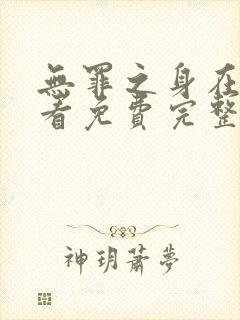 無罪之身在
看免費完整
神玥蕭夢